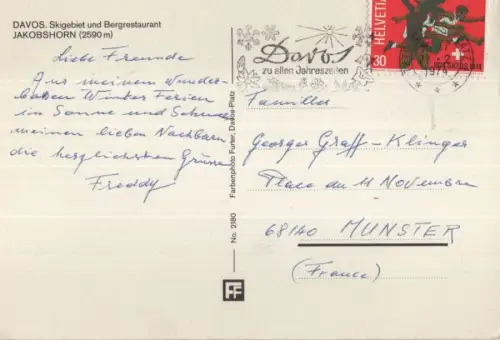 DAVOS. Skigebiet und Bergrestaurant
JAKOBSHORN (2590 m)
Liebe Freunde
Aus meinen wunder-
baren Winter Ferien
in Sonne und Schnee
meinen lieben Nachbarn
die herzlichsten Grüsse
Freddy
No. 2180 Farbenphoto Furter, Davos-Platz
FF
Davos
zu allen Jahreszeiten
HELVETIA
30
1974
Famille
Georges Graff-Klinger
Place du 11 Novembre
68140 MUNSTER
(France)